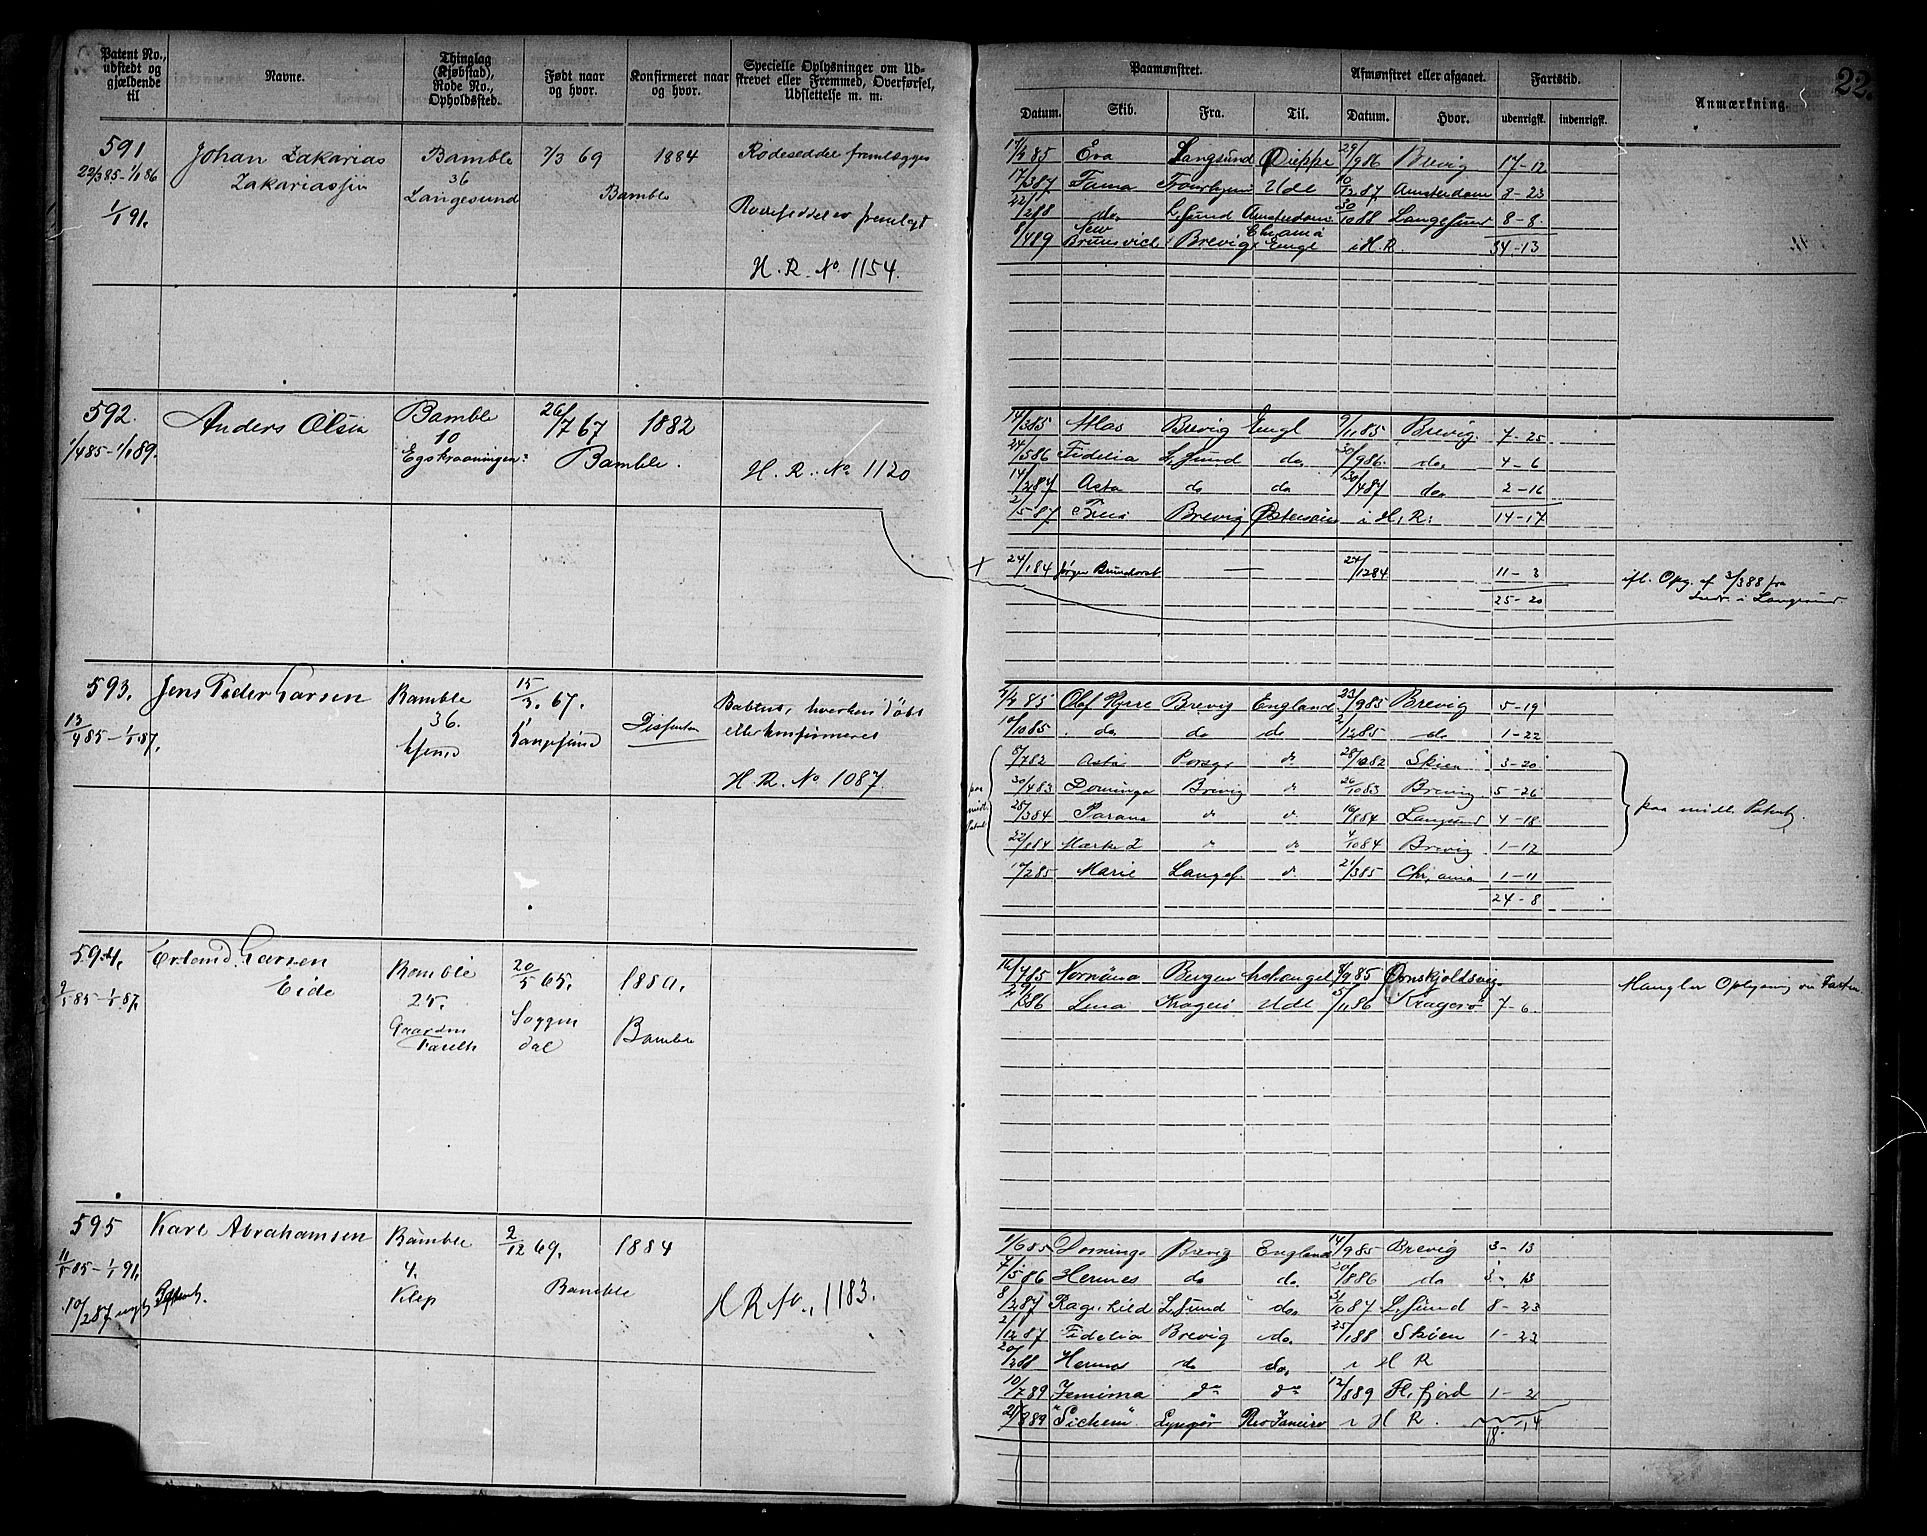 22.
Patent No., udstedt og gjældende til
Navne.
Thinglag (Kjøbstad), Rode No., Opholdssted.
Født naar og hvor.
Konfirmeret naar og hvor.
Specielle Oplysninger om Udskrevet eller Fremmed, Overførsel, Udslettelse m. m.
Paamønstret.
Afmønstret eller afgaaet.
Fartstid.
Anmærkning.
Datum. Skib. Fra. Til. Datum. Hvor. udenrigsk. indenrigsk.
591
22/3 85 - 1/1 86
1/1 91.
Johan Zakarias
Zakariassen
Bamble
36
Langesund
2/3 69
1884
Bamble
Rodeseddel fremlægges
Rodeseddel er fremlagt
H. R. No 1154.
Eva Langsund Dieppe 29/9 86 Brevig 17-12
17/3 87 Fama Udl 10/12 87 Amsterdam 8-23
22/2 88 do L.sund Amsterdam 30/10 88 Langesund 8-8
8/4 89 New Brunsvich Brevig Chr.ania Engl i H. R. 34-13
592.
1/4 85 - 1/1 89.
Anders Olsen
Bamble
10
26/7 67
Bamble.
1882
H. R. No 1120
14/3 85 Atlas Brevig Engl 9/11 85 Brevig. 7-25
24/5 86 Fidelia L.sund do 30/9 86 do 4-6
14/2 87 Asta do do 30/4 87 do 2-16
2/5 87 Brevig Østersøen i H. R. 14-17
+ 24/1 84 Jørgen — 24/12 84 11-3
25-20
ifl. Opg. af 3/3 88 fra
i Langesund.
593.
13/4 85 - 1/1 87.
Jens Peder Larsen
Bamble
36.
15/3 67.
Langesund
Babtist, hverken døbt
eller konfirmeret
H. R. No 1087.
Olaf Kyrre Brevig England 23/9 85 Brevig 5-19
10/10 85 do do do 2/12 85 do 1-22
8/7 82 Asta Porsgr do 28/10 82 Skien 3-20
30/4 83 Domingo Brevig do 26/10 83 Brevig 5-26
28/3 84 Parana do do 16/8 84 Langsund 4-18
22/8 84 do do 4/10 84 Brevig 1-12
10/2 85 Marie Langes. do 21/3 85 Chr.ania 1-11
24-8
paa midl. Patent
paa midl. Patent.
594.
2/5 85 - 1/1 87.
Erland Larsen
Eide
Bamble
25.
Gaarden
20/5 65.
Soggen
dal
1880.
Bamble
Bergen Archangel 8/9 85 Ørnskjoldsvig.
Lina Kragerø Udl 5/11 86 Kragerø 7-6.
Mangler Oplysning om Farten
595
11/5 85 - 1/1 91.
10/2 87 nyt Patent.
Karl Abrahamsen
Bamble
4.
Klep
2/12 69.
1884
Bamble
H R No. 1183.
1/6 85 Domingo Brevig England 14/9 85 Brevig 3-13
7/5 86 Hermes do do. 20/8 86 do 3-13
8/2 87 Ragnhild L.sund do. 31/10 87 L.sund 8-23
2/12 87 Fidelia Brevig do. 25/1 88 Skien 1-23
20/2 88 Hermes do do, i H R
10/7 89 Jemima do do 12/8 89 Fl.fjord 1-2
21/8 89 "Sichem" Lyngør Rio Janeiro i H R. 18-14